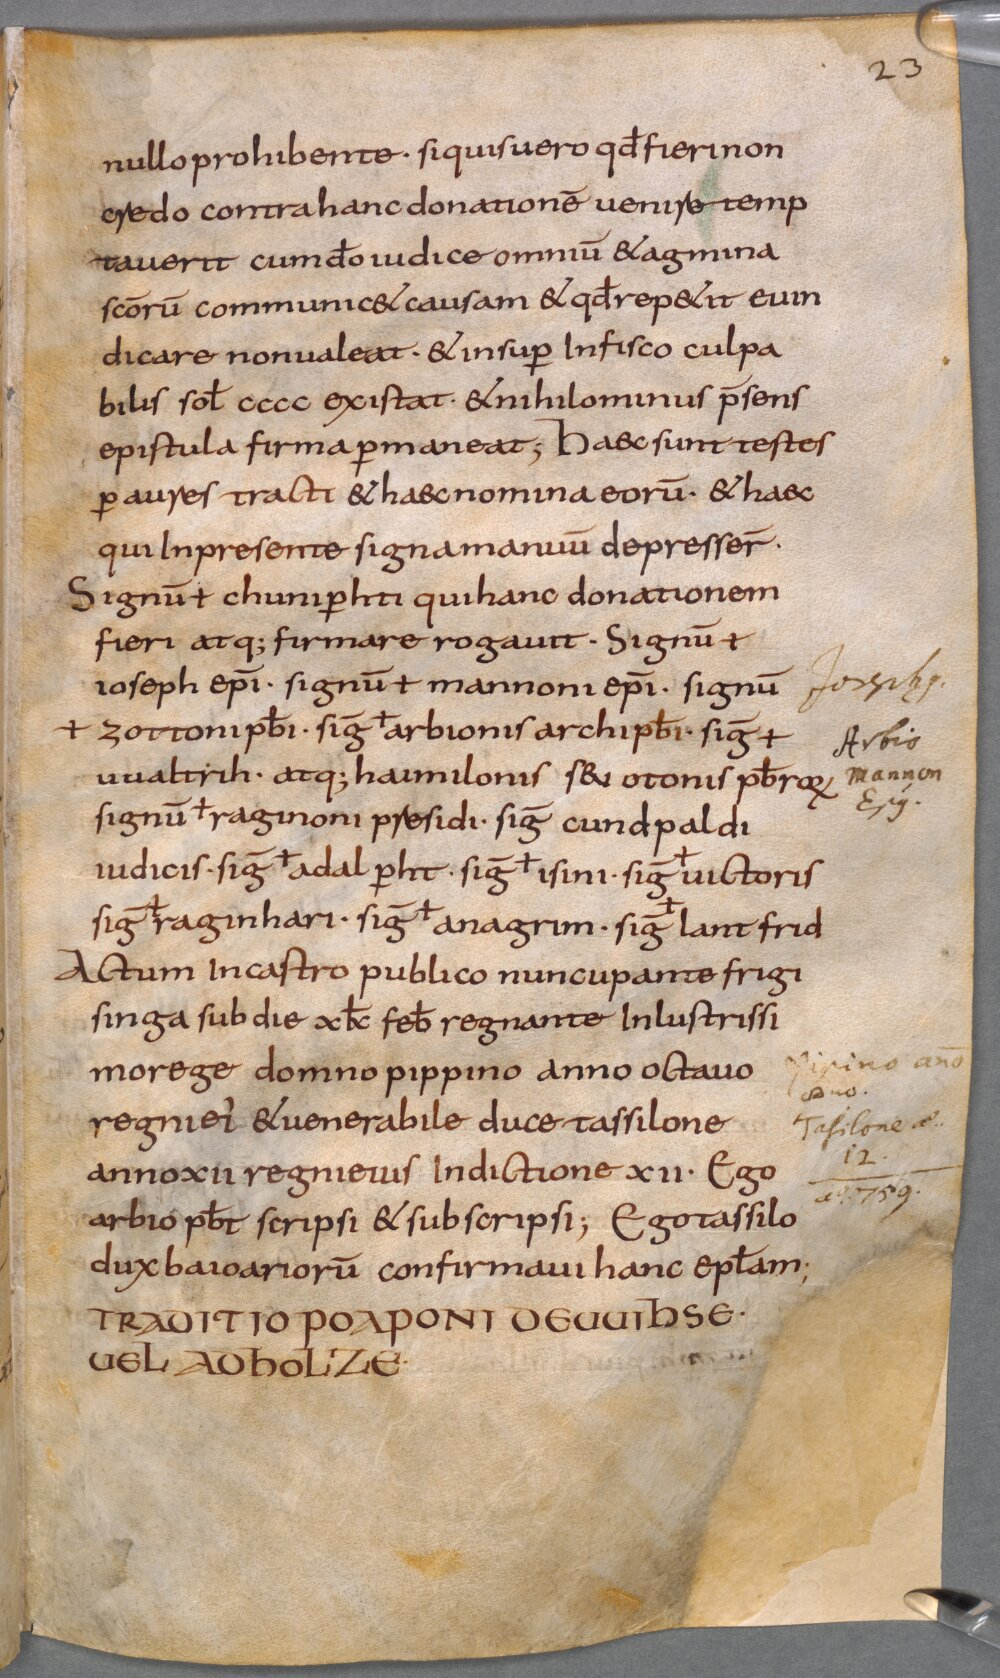 23
nullo prohibente · siquis uero qđ fieri non
credo contra hanc donationē uenire temp
tauerit cum dō iudice omniū & agmina
scōrū communic& causam & qđ rep&it euin
dicare non ualeat · & insup̄ In fisco culpa
bilis sol̄ cccc existat · & nihilominus p̄sens
epistula firma p̄maneat; Haec sunt testes
p̄ aures tracti & haec nomina eorū · & haec
qui In presente signa manuū depresser̄ ·
Signū † chunip̄hti qui hanc donationem
fieri atq; firmare rogauit · Signū †
ioseph ep̄i · signū † mannoni ep̄i · signū
Joseph9.
† zottoni pb̄i · siḡ † arbionis archipb̄i · siḡ †
Arbio
uualtrih · atq; haimilonis s& otonis pb̄roꝝ
Mannon
Epi9.
signū † raginoni presidi · siḡ cundpaldi
iudicis · siḡ † adalp̄ht · siḡ † isini · siḡ † uictoris
siḡ † raginhari · siḡ † anagrim · siḡ † lantfrid
Actum In castro publico nuncupante frigi
singa sub die xl̄c feb̄ regnante Inlustrissi
mo rege domno pippino anno octauo
Pipino an̄o
8uo.
regni ei & uenerabile duce tassilone
Tasilone
anno xii regni eius Indictione xii · Ego
12.
arbio pb̄t scripsi & subscripsi; Ego tassilo
759.
dux baioariorū confirmaui hanc epl̄am;
TRADITIO POAPONI DE UUIHSE ·
UEL AD HOLZE ·